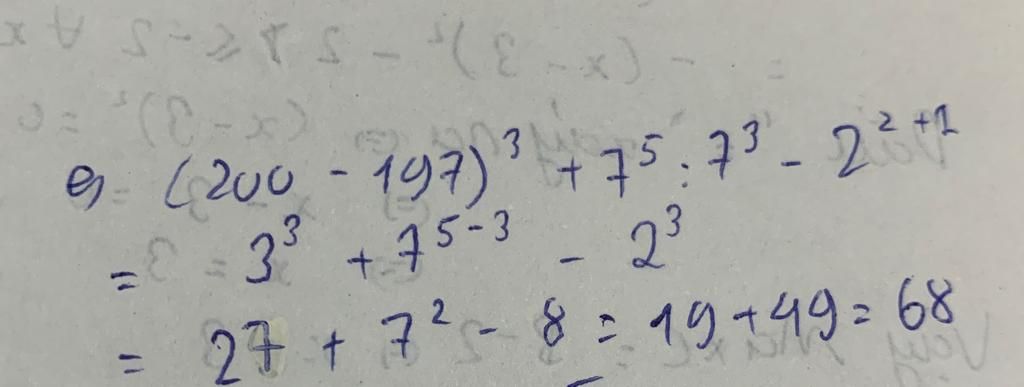 e) (200 - 197)³ + 7⁵ : 7³ - 2²⁺¹
= 3³ + 7⁵⁻³ - 2³
= 27 + 7² - 8 = 19 + 49 = 68